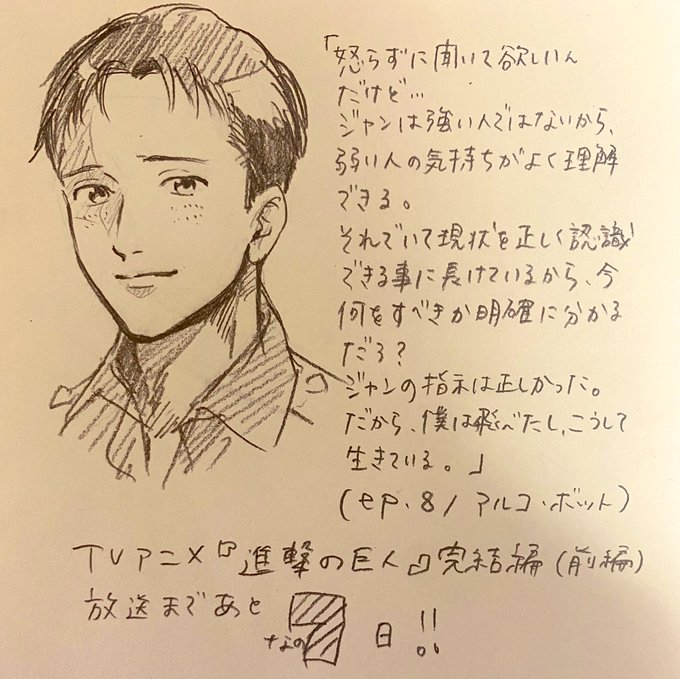 「怒らずに聞いて欲しいん
だけど…
ジャンは強い人ではないから、
弱い人の気持ちがよく理解
できる。
それでいて現状を正しく認識
できる事に長けているから、今
何をすべきか明確に分かる
だろ？
ジャンの指示は正しかった。
だから、僕は飛べたし、こうして
生きている。」
(ep.8/マルコ・ボット)
TVアニメ『進撃の巨人』完結編(前編)
放送まであと 7 日!!
なの